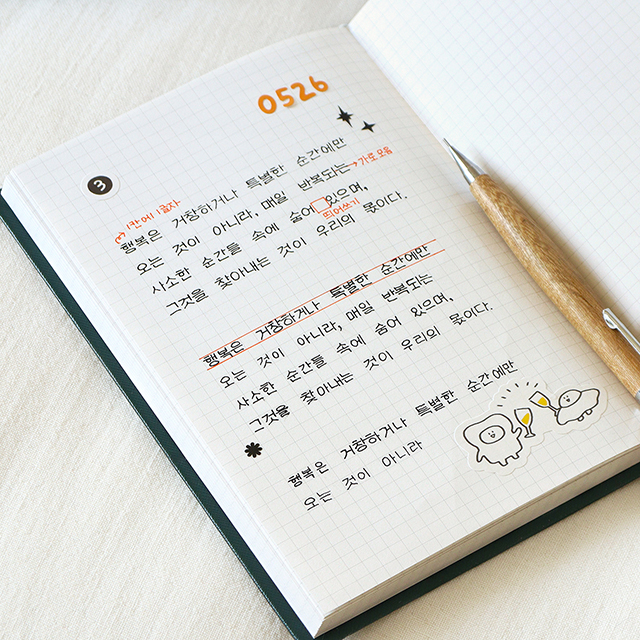 0526
3
1칸에 1글자
행복은 거창하거나 특별한 순간에만
오는 것이 아니라, 매일 반복되는 →가로모음
사소한 순간들 속에 숨어 있으며,
띄어쓰기
그것을 찾아내는 것이 우리의 몫이다.
행복은 거창하거나 특별한 순간에만
오는 것이 아니라, 매일 반복되는
사소한 순간들 속에 숨어 있으며,
그것을 찾아내는 것이 우리의 몫이다.
행복은 거창하거나 특별한 순간에만
오는 것이 아니라